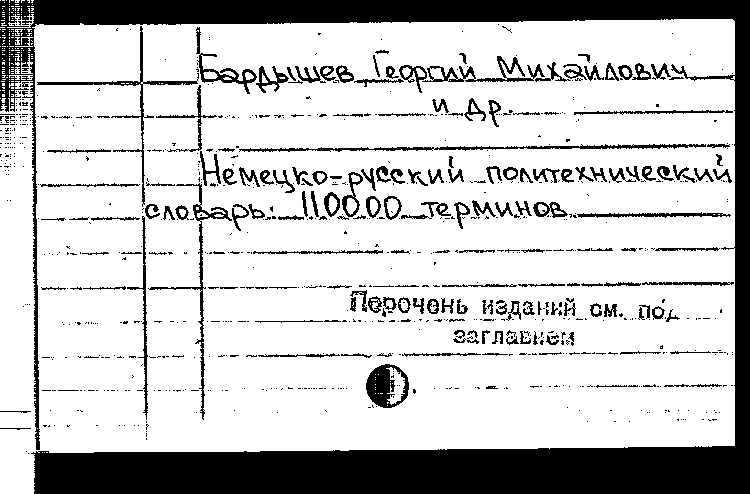 Бардышев, Георгий Михайлович
и др.
Немецко-русский политехнический
словарь: 110000 терминов
Перечень изданий см. под
заглавием